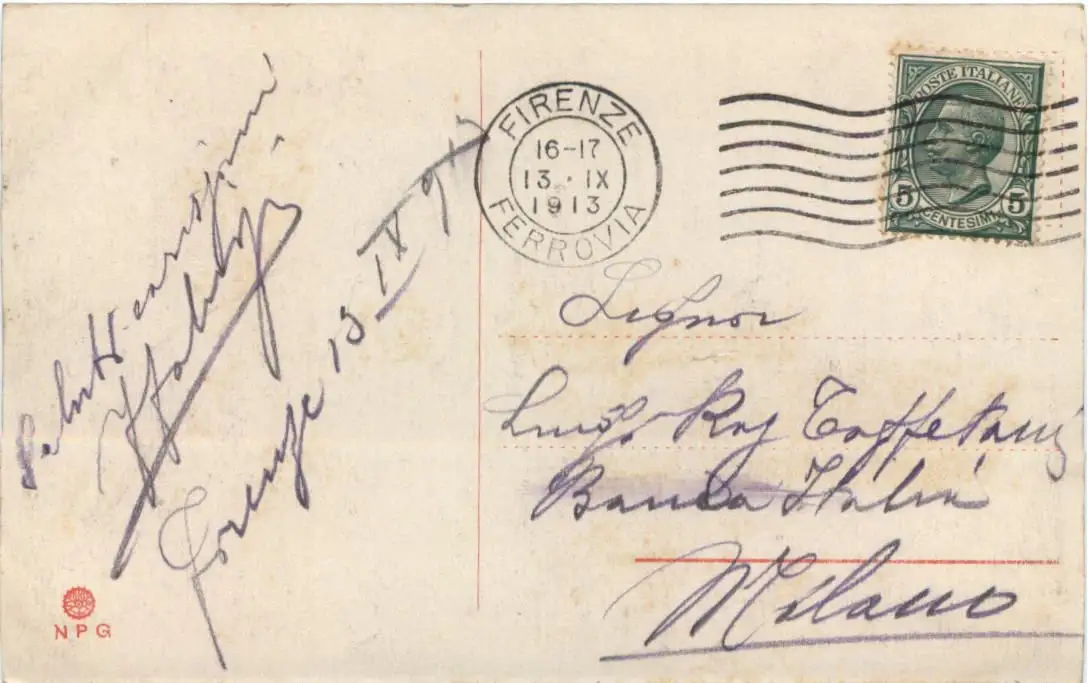 Saluti carissimi
Firenze 13 IX 913
NPG
FIRENZE
16-17
13 · IX
1913
FERROVIA
POSTE ITALIANE
5 CENTESIMI 5
Signor
Luigi Taffetani
Banca Italia
Milano